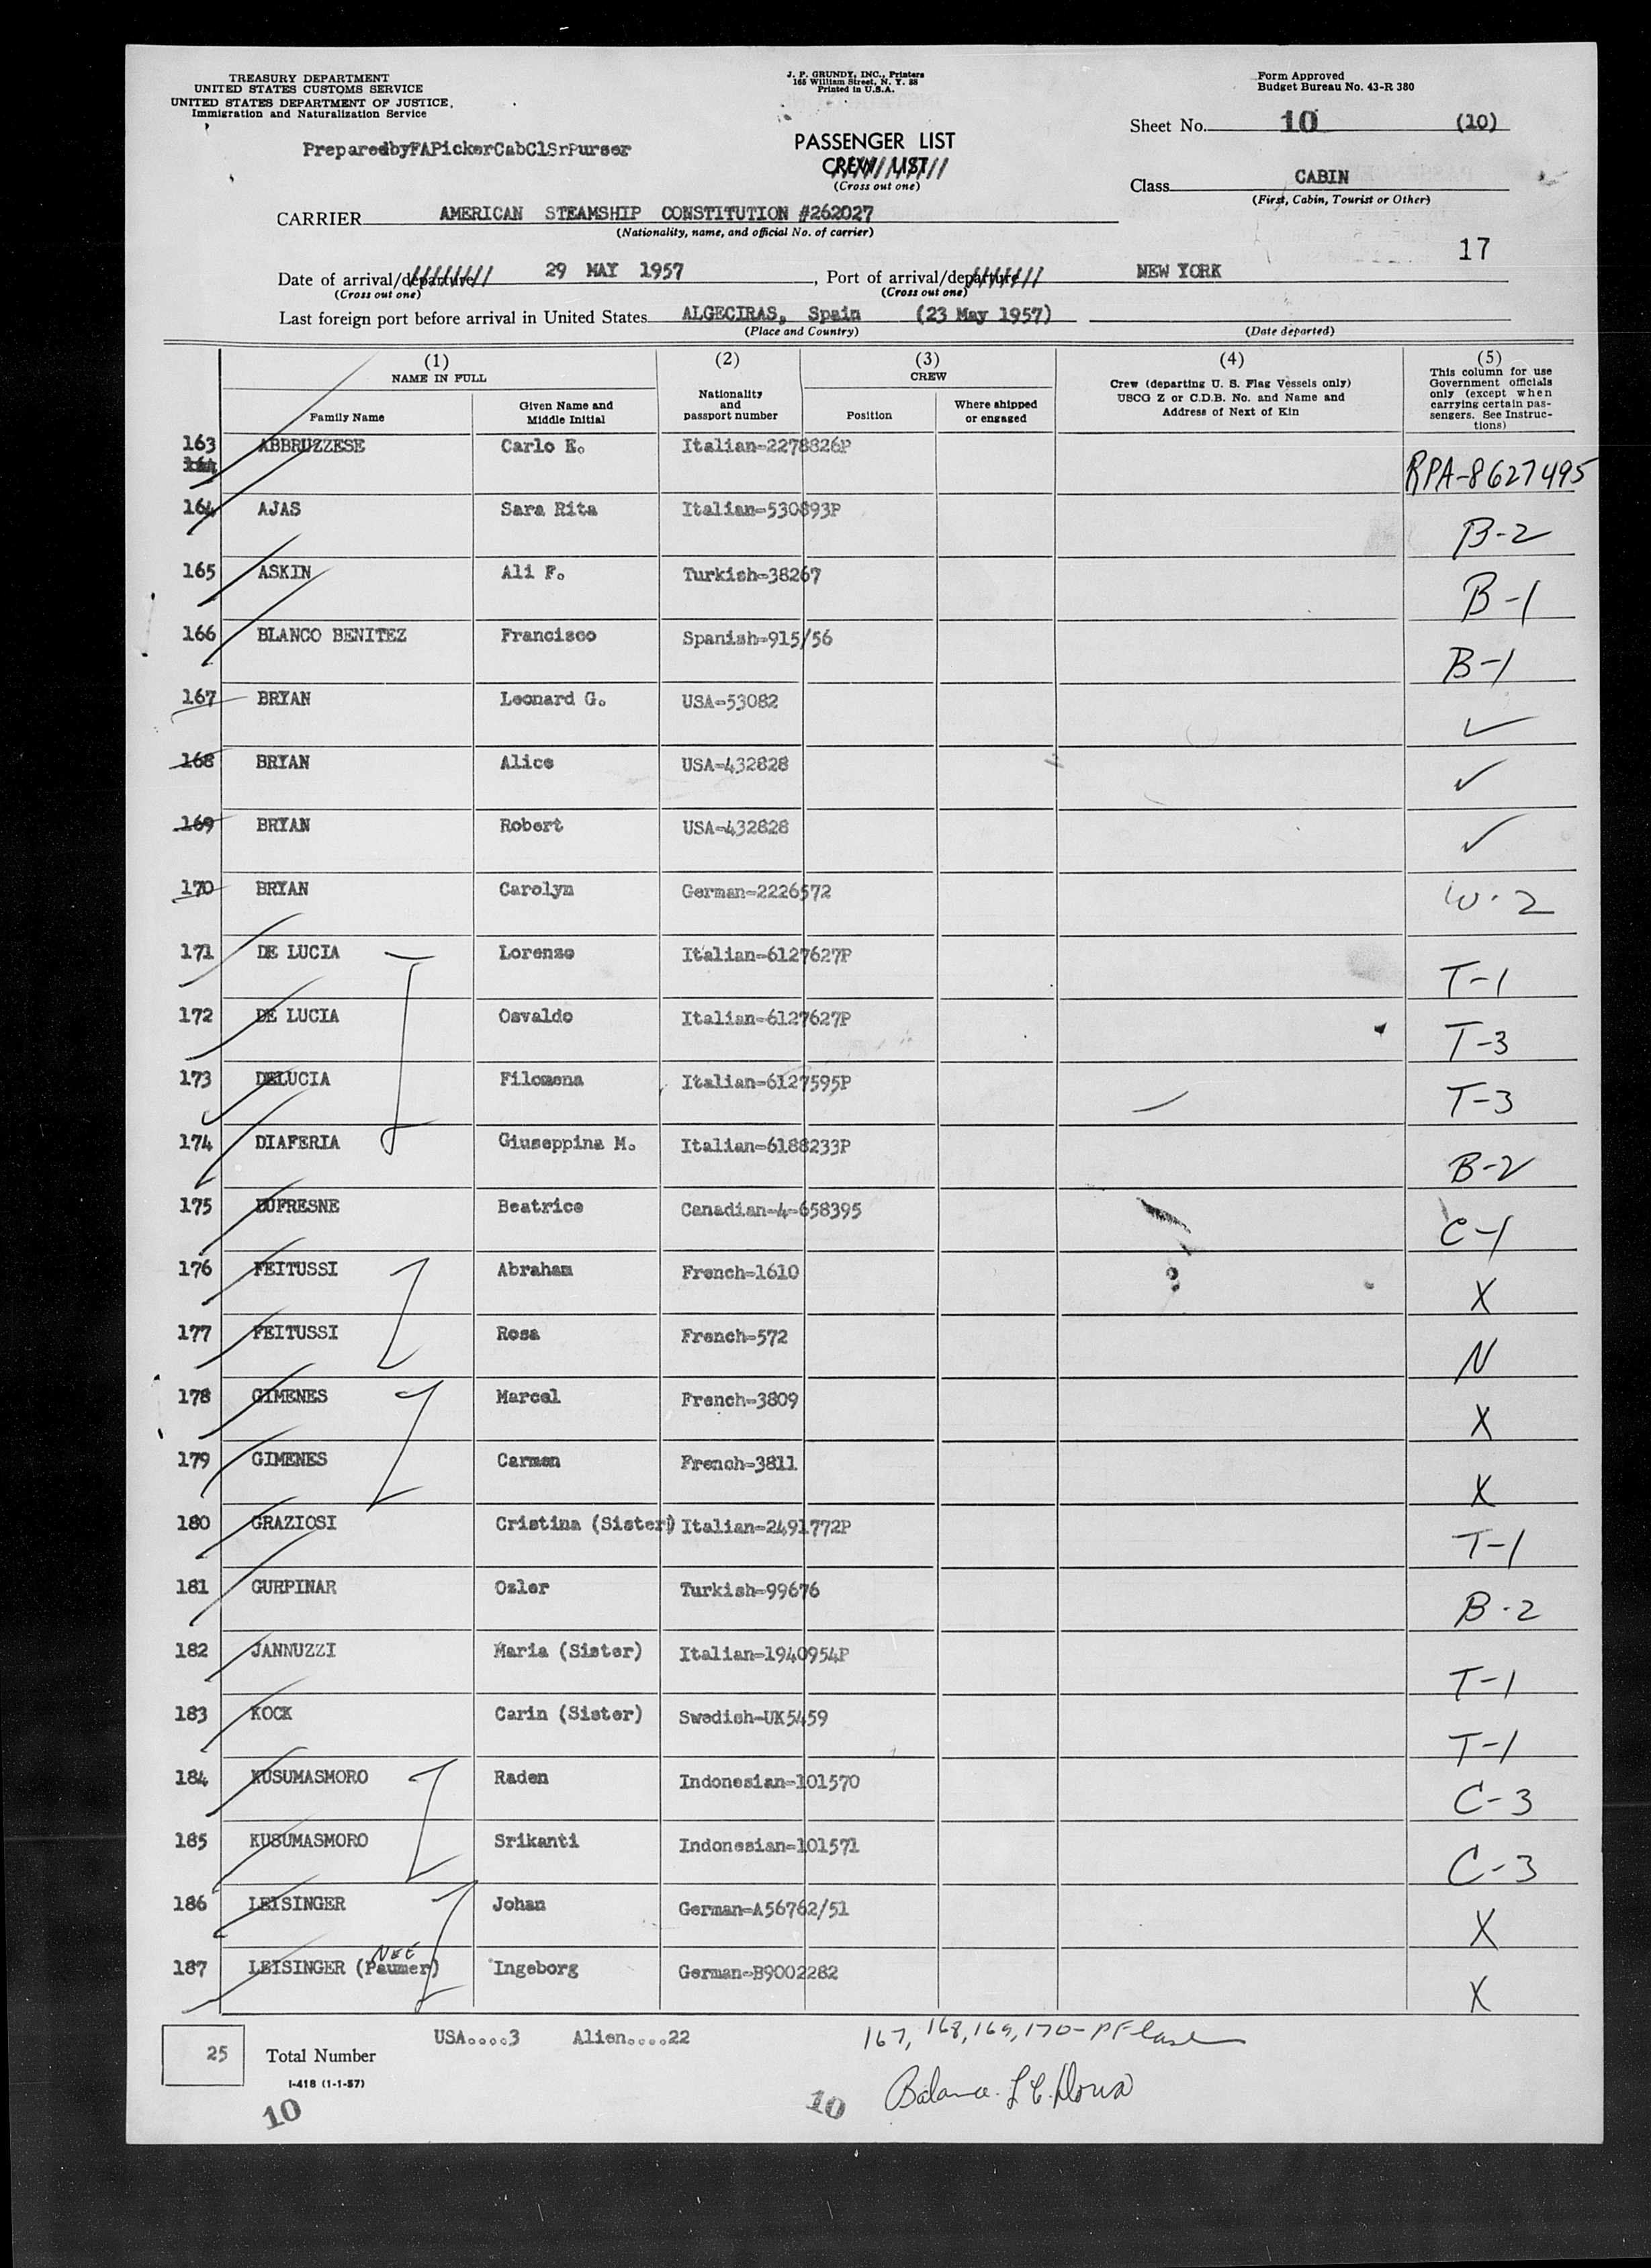 TREASURY DEPARTMENT
UNITED STATES CUSTOMS SERVICE
UNITED STATES DEPARTMENT OF JUSTICE,
Immigration and Naturalization Service
J. P. GRUNDY, INC., Printers
165 William Street, N. Y. 38
Printed in U.S.A.
Form Approved
Budget Bureau No. 43-R 380
Sheet No. 10 (10)
PreparedbyFAPickerCabClSrPurser
PASSENGER LIST
CREW LIST
(Cross out one)
Class CABIN
(First, Cabin, Tourist or Other)
CARRIER AMERICAN STEAMSHIP CONSTITUTION #262027
(Nationality, name, and official No. of carrier)
17
Date of arrival/departure 29 MAY 1957, Port of arrival/departure NEW YORK
(Cross out one) (Cross out one)
Last foreign port before arrival in United States ALGECIRAS, Spain (23 May 1957)
(Place and Country) (Date departed)
(1) (2) (3) (4) (5)
NAME IN FULL
Family Name
Given Name and
Middle Initial
Nationality
and
passport number
CREW
Position
Where shipped
or engaged
Crew (departing U. S. Flag Vessels only)
USCG Z or C.D.B. No. and Name and
Address of Next of Kin
This column for use
Government officials
only (except when
carrying certain pas-
sengers. See Instruc-
tions)
163 ABBRUZZESE Carlo E. Italian-2278826P RPA-8627495
164 AJAS Sara Rita Italian-530893P B-2
165 ASKIN Ali F. Turkish-38267 B-1
166 BLANCO BENITEZ Francisco Spanish-915/56 B-1
167 BRYAN Leonard G. USA-53082 ✓
168 BRYAN Alice USA-432828 ✓
169 BRYAN Robert USA-432828 ✓
170 BRYAN Carolyn German-2226572 W-2
171 DE LUCIA Lorenzo Italian-6127627P T-1
172 DE LUCIA Osvaldo Italian-6127627P T-3
173 DELUCIA Filomena Italian-6127595P T-3
174 DIAFERIA Giuseppina M. Italian-6188233P B-2
175 DUFRESNE Beatrice Canadian-4-658395 C-1
176 FEITUSSI Abraham French-1610 X
177 FEITUSSI Rosa French-572 N
178 GIMENES Marcel French-3809 X
179 GIMENES Carmen French-3811 X
180 GRAZIOSI Cristina (Sister) Italian-2491772P T-1
181 GURPINAR Ozler Turkish-99676 B-2
182 JANNUZZI Maria (Sister) Italian-1940954P T-1
183 KOCK Carin (Sister) Swedish-UK5459 T-1
184 KUSUMASMORO Raden Indonesian-101570 C-3
185 KUSUMASMORO Srikanti Indonesian-101571 C-3
186 LEISINGER Johan German-A56762/51 X
NEE
187 LEISINGER (Paumer) Ingeborg German-B9002282 X
USA....3 Alien....22
167, 168, 169, 170-
25 Total Number
I-418 (1-1-57)
Balance.
10 10